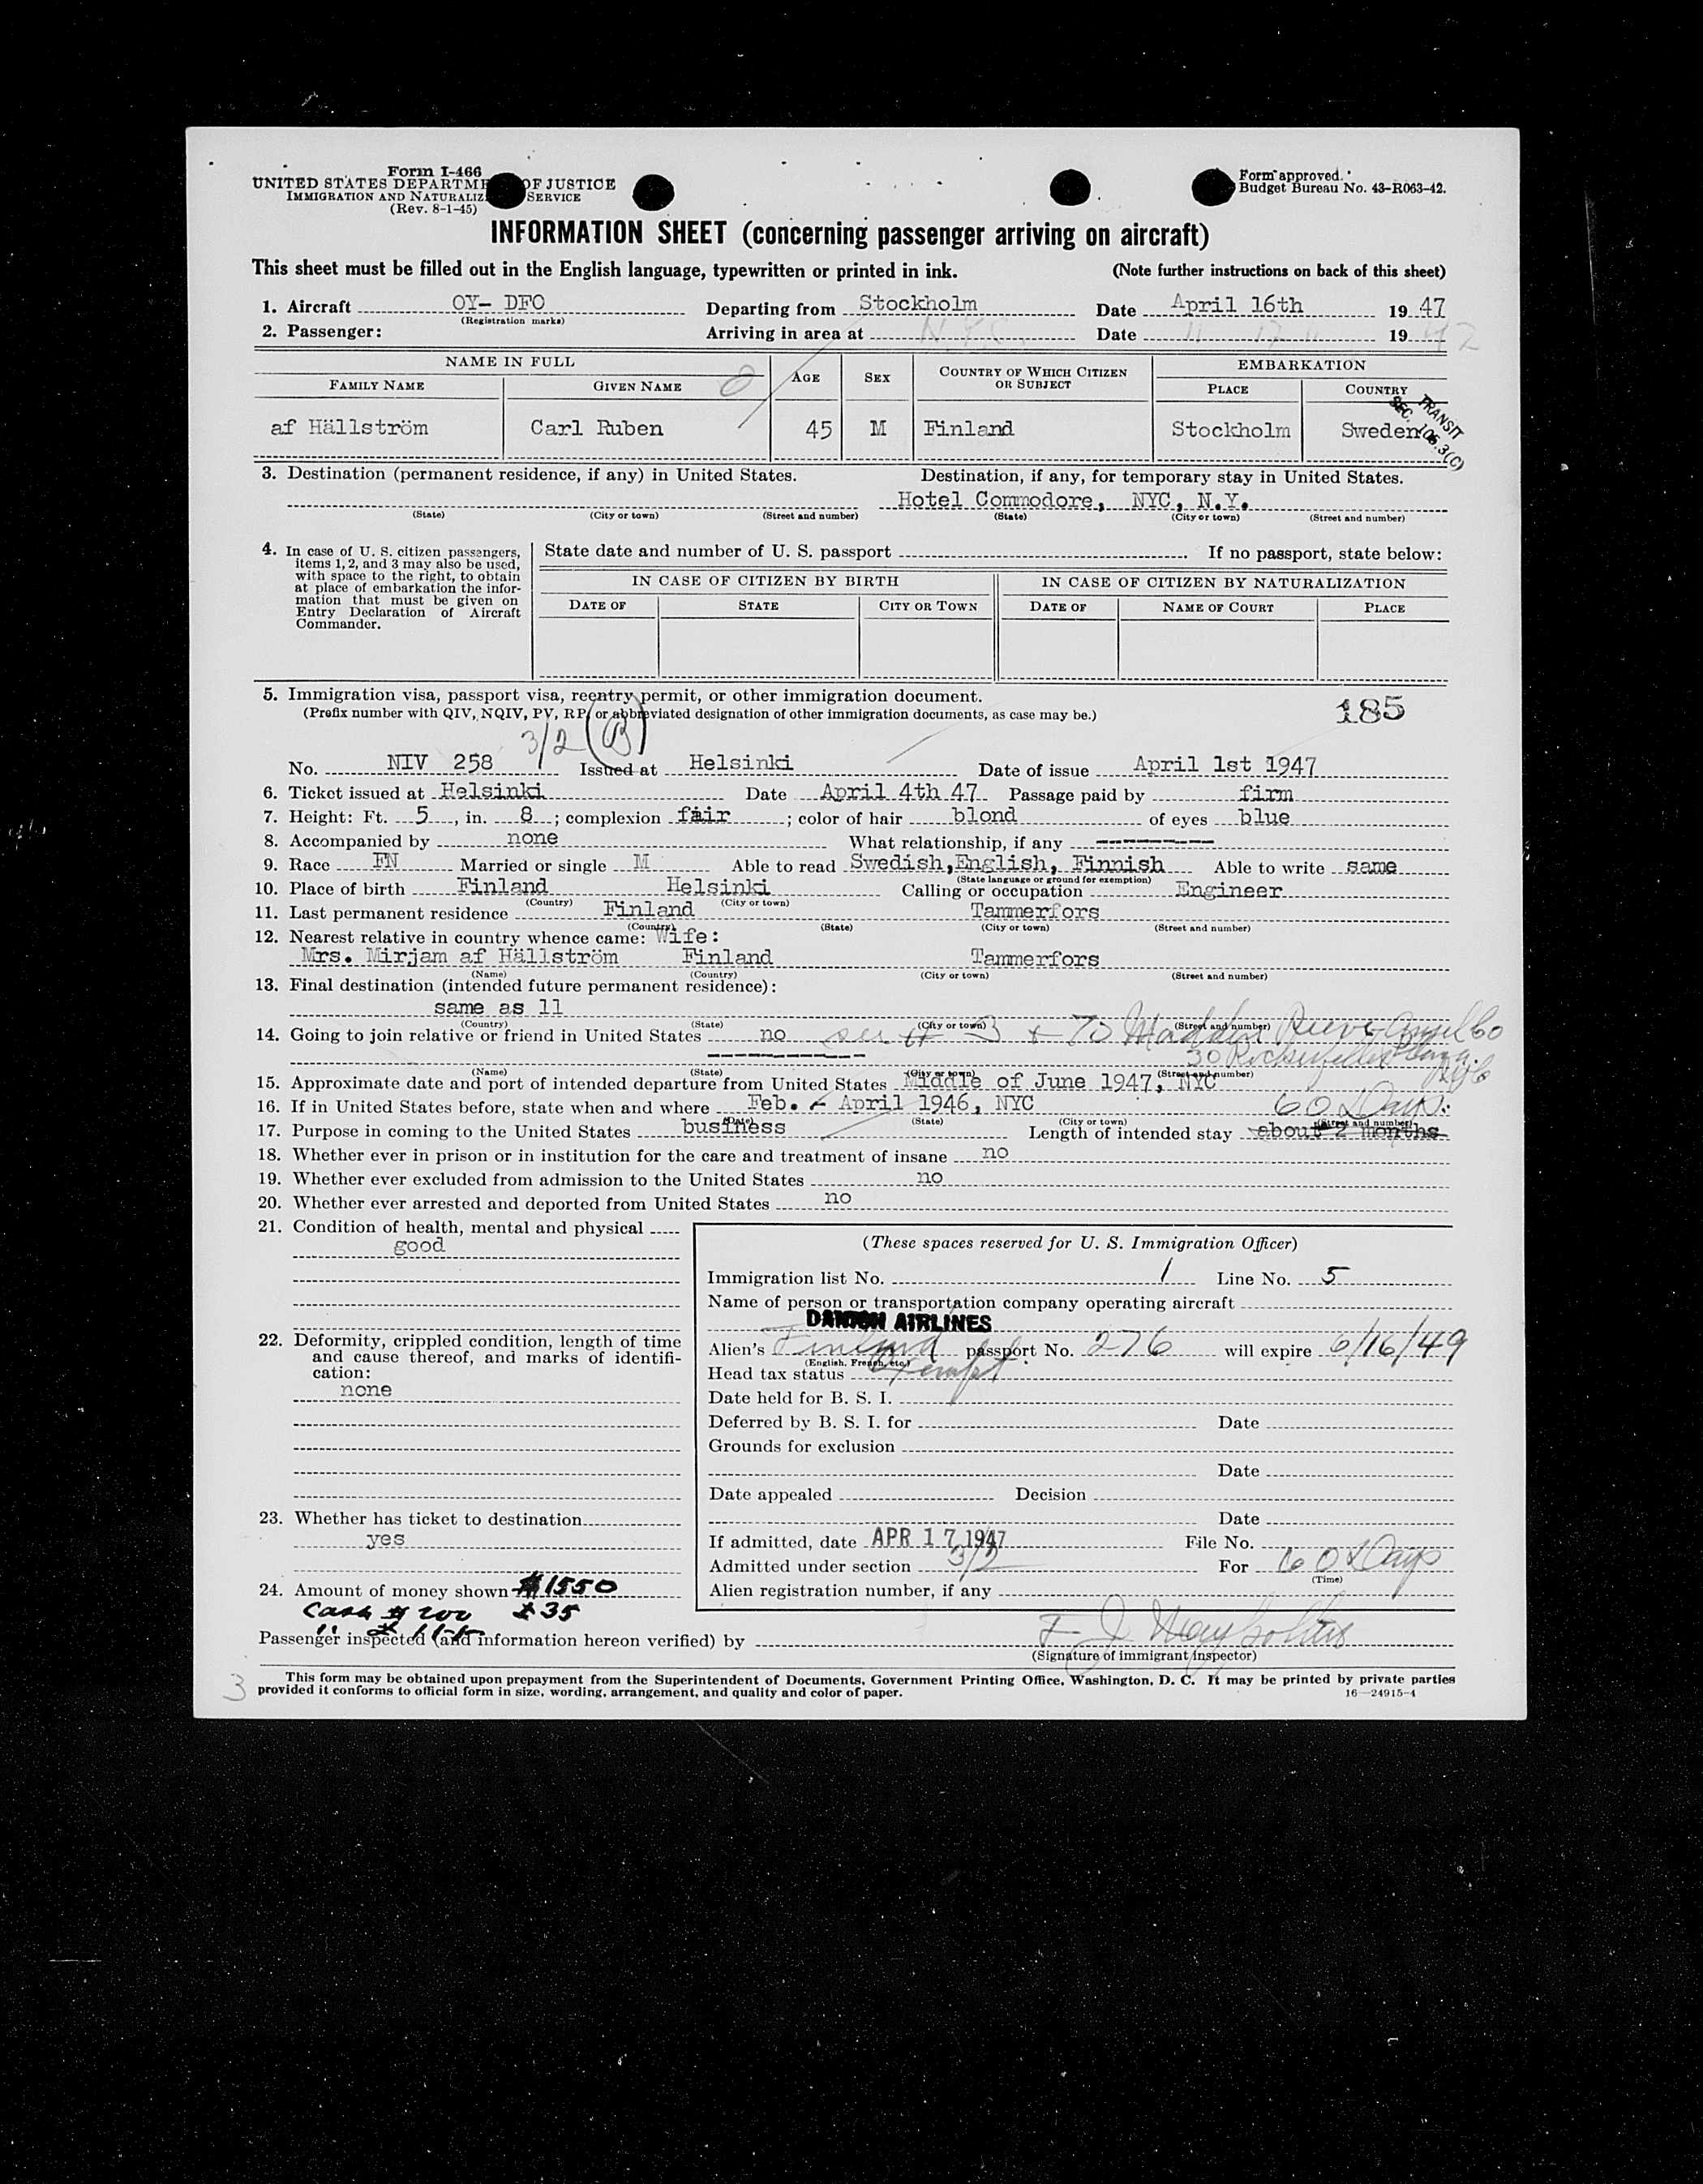 Form I-466
UNITED STATES DEPARTME OF JUSTICE
IMMIGRATION AND NATURALIZ SERVICE
(Rev. 8-1-45)
Form approved.
Budget Bureau No. 43-R063-42.
INFORMATION SHEET (concerning passenger arriving on aircraft)
This sheet must be filled out in the English language, typewritten or printed in ink. (Note further instructions on back of this sheet)
1. Aircraft OY- DFO Departing from Stockholm Date April 16th 19 47
(Registration marks)
2. Passenger: Arriving in area at N.Y.C. Date 19
NAME IN FULL AGE SEX COUNTRY OF WHICH CITIZEN OR SUBJECT EMBARKATION
FAMILY NAME GIVEN NAME PLACE COUNTRY
af Hällström Carl Ruben 45 M Finland Stockholm Sweden
TRANSIT
SEC. 106.3(C)
3. Destination (permanent residence, if any) in United States. Destination, if any, for temporary stay in United States.
Hotel Commodore, NYC, N.Y.
(State) (City or town) (Street and number) (State) (City or town) (Street and number)
4. In case of U. S. citizen passengers, items 1, 2, and 3 may also be used, with space to the right, to obtain at place of embarkation the information that must be given on Entry Declaration of Aircraft Commander.
State date and number of U. S. passport . If no passport, state below:
IN CASE OF CITIZEN BY BIRTH IN CASE OF CITIZEN BY NATURALIZATION
DATE OF STATE CITY OR TOWN DATE OF NAME OF COURT PLACE
5. Immigration visa, passport visa, reentry permit, or other immigration document.
(Prefix number with QIV, NQIV, PV, RP, or abbreviated designation of other immigration documents, as case may be.)
185
3/2 (B)
No. NIV 258 Issued at Helsinki Date of issue April 1st 1947
6. Ticket issued at Helsinki Date April 4th 47 Passage paid by firm
7. Height: Ft. 5, in. 8; complexion fair; color of hair blond of eyes blue
8. Accompanied by none What relationship, if any ----------
9. Race FN Married or single M Able to read Swedish, English, Finnish Able to write same
(State language or ground for exemption)
10. Place of birth Finland Helsinki Calling or occupation Engineer
(Country) (City or town)
11. Last permanent residence Finland Tammerfors
(Country) (State) (City or town) (Street and number)
12. Nearest relative in country whence came: Wife:
Mrs. Mirjam af Hällström Finland Tammerfors
(Name) (Country) (City or town) (Street and number)
13. Final destination (intended future permanent residence):
same as 11
(Country) (State) (City or town) (Street and number)
14. Going to join relative or friend in United States no
(Name) (State) (City or town) (Street and number)
15. Approximate date and port of intended departure from United States Middle of June 1947, NYC
16. If in United States before, state when and where Feb. - April 1946, NYC
60 Days
(Date) (State) (City or town) (Street and number)
17. Purpose in coming to the United States business Length of intended stay about 2 months
18. Whether ever in prison or in institution for the care and treatment of insane no
19. Whether ever excluded from admission to the United States no
20. Whether ever arrested and deported from United States no
21. Condition of health, mental and physical
good
(These spaces reserved for U. S. Immigration Officer)
Immigration list No. 1 Line No. 5
Name of person or transportation company operating aircraft
DANISH AIRLINES
22. Deformity, crippled condition, length of time and cause thereof, and marks of identification:
none
Alien's Finland passport No. 276 will expire 6/16/49
(English, French, etc.)
Head tax status Exempt
Date held for B. S. I.
Deferred by B. S. I. for Date
Grounds for exclusion
Date
Date appealed Decision
23. Whether has ticket to destination
yes
Date
If admitted, date APR 17 1947 File No.
Admitted under section 3/2 For 60 Days
(Time)
24. Amount of money shown $1550
Alien registration number, if any
Cash $ 200 £ 35
Passenger inspected (and information hereon verified) by
(Signature of immigrant inspector)
This form may be obtained upon prepayment from the Superintendent of Documents, Government Printing Office, Washington, D. C. It may be printed by private parties
provided it conforms to official form in size, wording, arrangement, and quality and color of paper. 16—24915-4
3